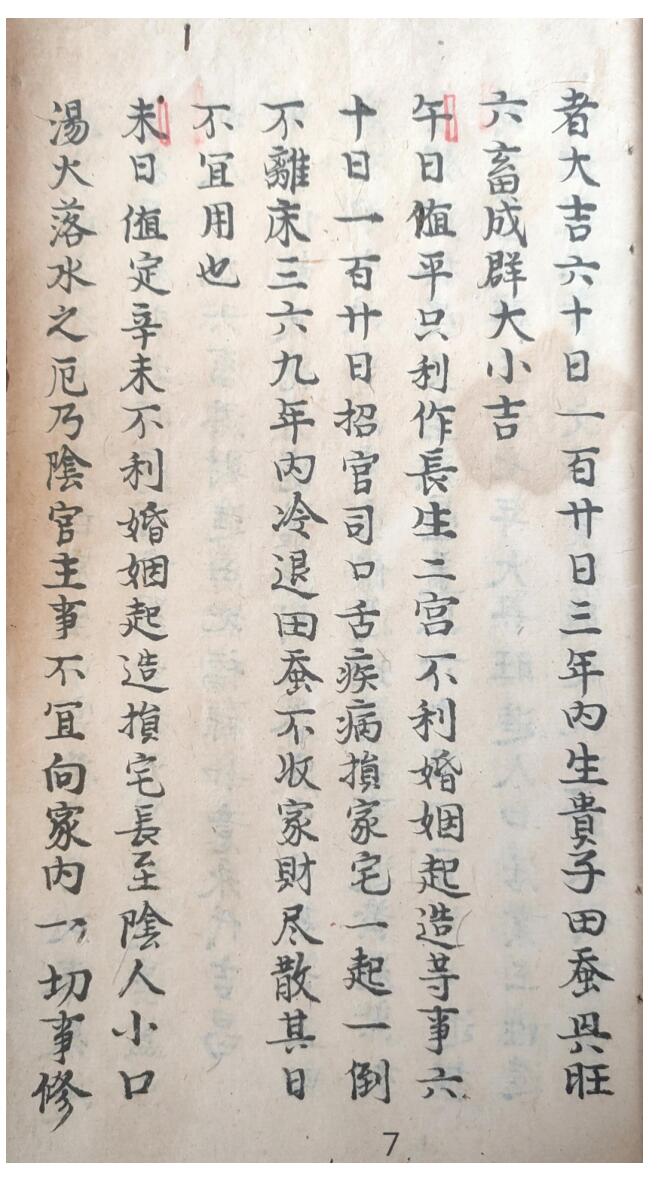 者大吉六十日一百廿日三年内生貴子田蚕興旺
六畜成群大小吉
午日値平只利作長生二宫不利婚姻起造等事六
十日一百廿日招官司口舌疾病損家宅一起一倒
不離床三六九年内冷退田蚕不收家財尽散其日
不宜用也
未日値定辛未不利婚姻起造損宅長至陰人小口
湯火落水之厄乃陰宫主事不宜向家内一切事修
7